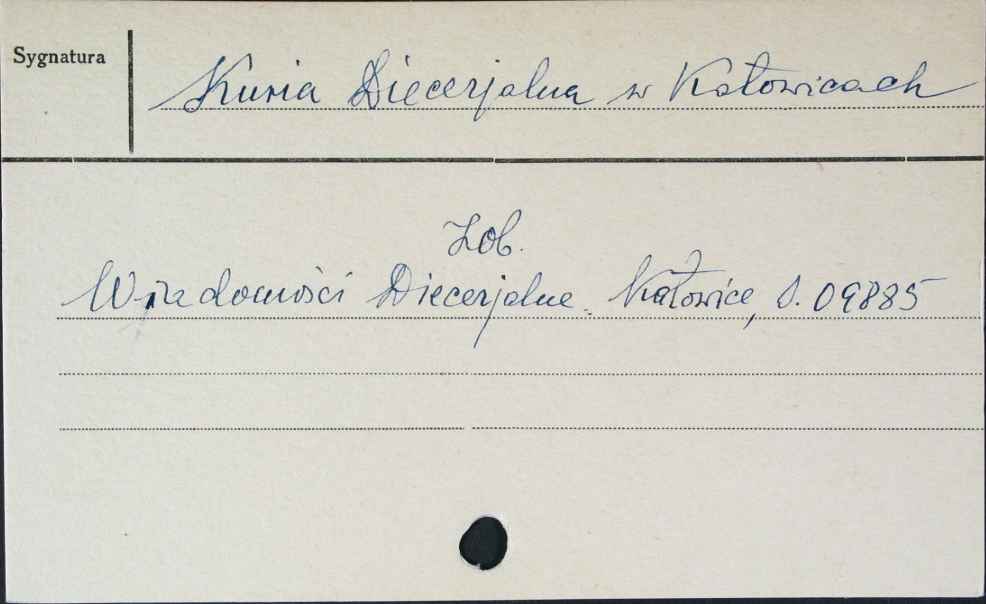 Sygnatura
Kuria Diecezjalna w Katowicach
Zob.
Wiadomości Diecezjalne. Katowice, S. 09885